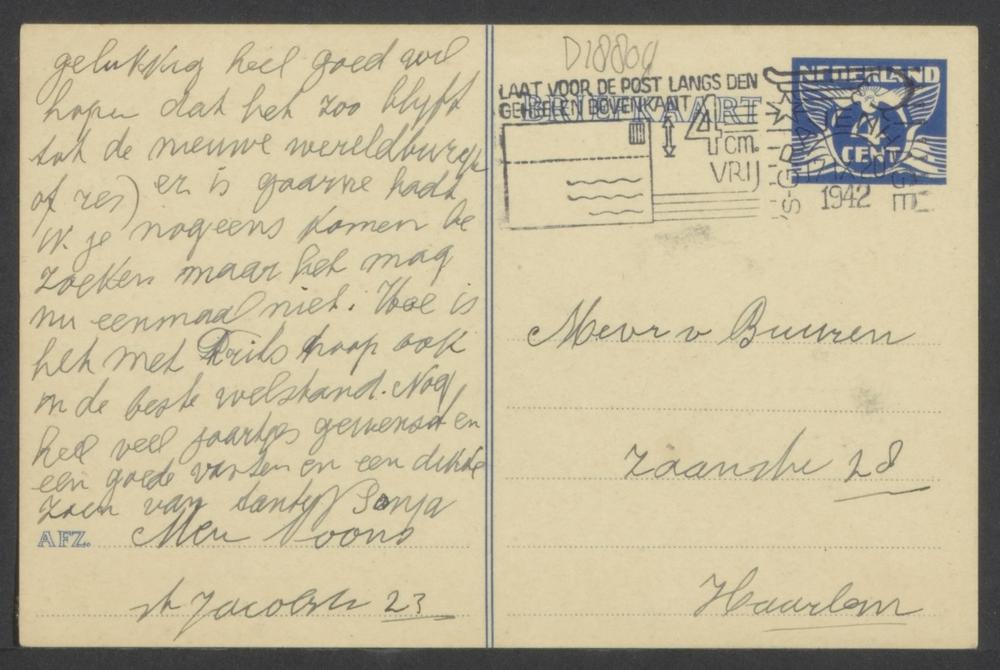 gelukkig heel goed wil
hopen dat het zoo blyft
tot de nieuwe wereldburger
of zes) er is gaarne hadt
je nogeens komen be
zoeken maar het mag
nu eenmaal niet. Hoe is
het met Frits hoop ook
in de beste welstand. Nog
heel veel jaartjes gewenscht en
een goede vasten en een dikke
zoen van tante Sonja
AFZ. Mev Voons
st Jacobstr 23
D18804
LAAT VOOR DE POST LANGS DEN
GEHEELEN BOVENKANT 4 cm.
VRIJ
BRIEFKAART
NEDERLAND
CENT
1942
Mevr v Buuren
Zaanshe 28
Haarlem